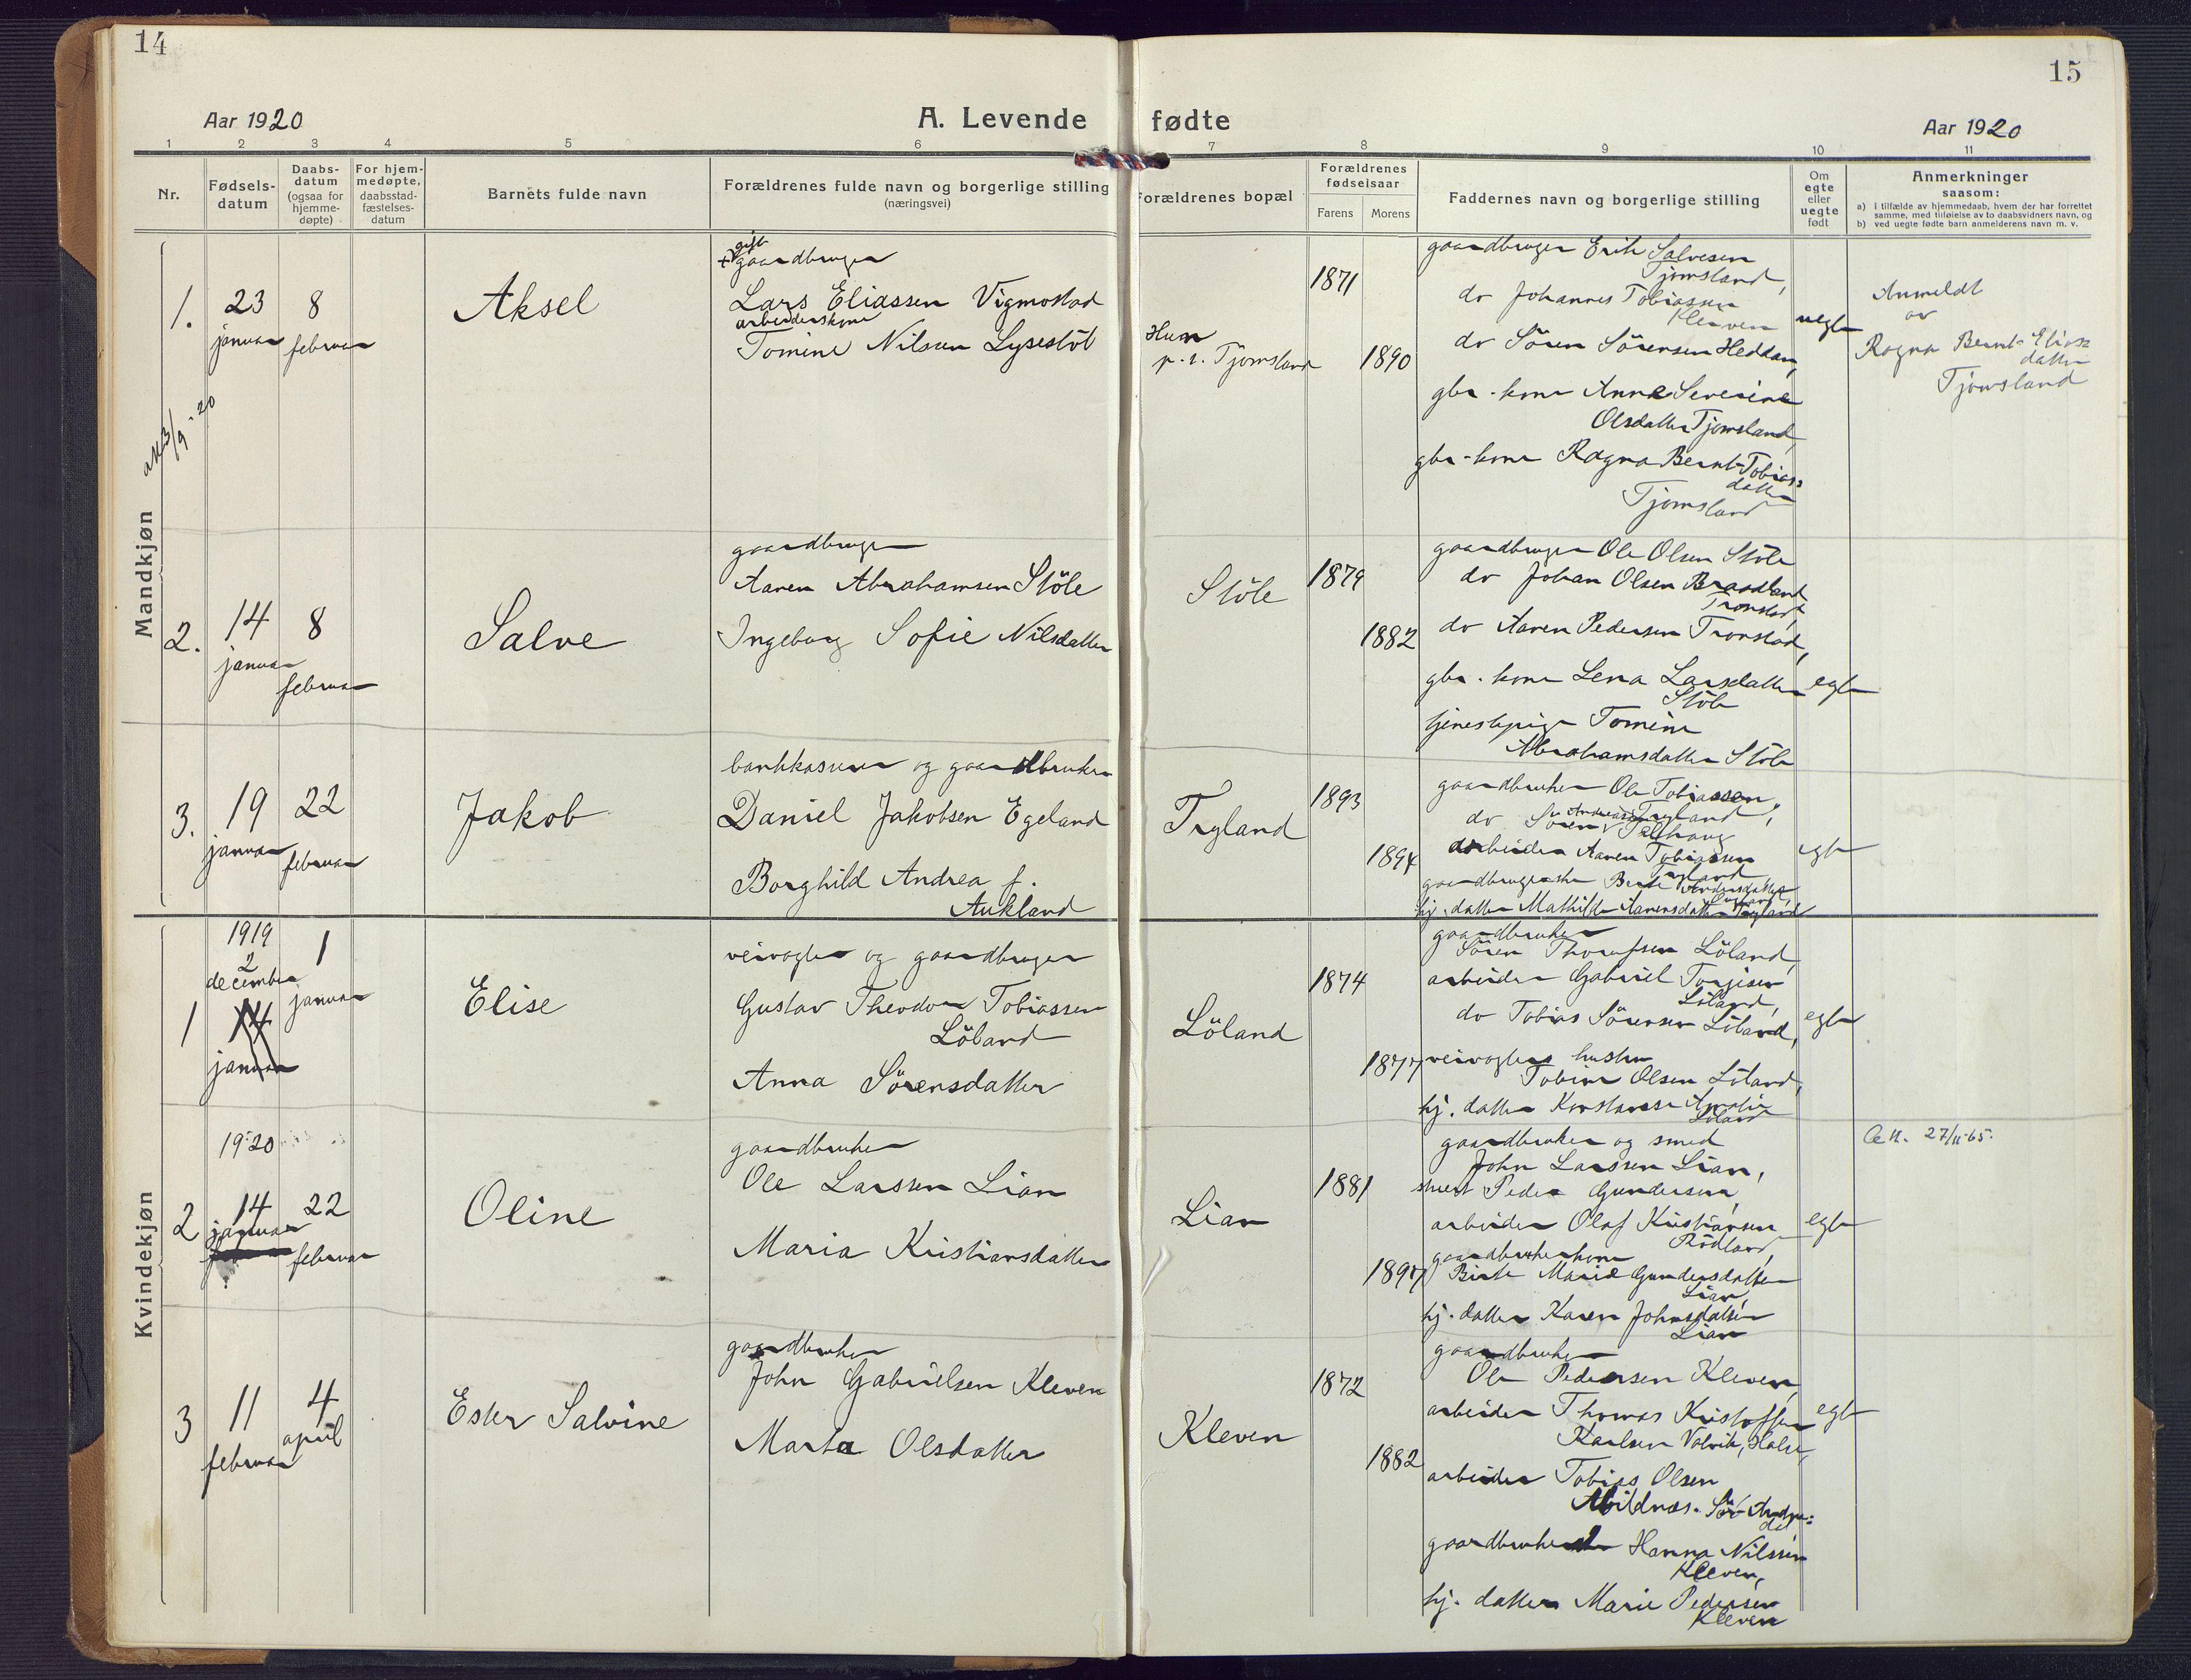 14
15
Aar 1920
A. Levende fødte
Aar 1920
1 2 3 4 5 6 7 8 9 10 11
Nr.
Fødsels-
datum
Daabs-
datum
(ogsaa for
hjemme-
døpte)
For hjem-
medøpte,
daabsstad-
fæstelses-
datum
Barnets fulde navn
Forældrenes fulde navn og borgerlige stilling
(næringsvei)
Forældrenes bopæl
Forældrenes
fødselsaar
Farens Morens
Faddernes navn og borgerlige stilling
Om
egte
eller
uegte
født
Anmerkninger
saasom:
a) i tilfælde av hjemmedaab, hvem der har forrettet
samme, med tilføielse av to daabsvidners navn, og
b) ved uegte fødte barn anmelderens navn m. v.
Mandkjøn
1.
23
januar
8
februar
Aksel
gift
gaardbruger
Lars Eliassen Vigmostad
arbeiderskone
Tomine Nilsen Lysestöl
Hun
p. t. Tjomsland
1871
1890
gaardbruger Erik Salvesen
Tjomsland,
do Johannes Tobiassen
Kleven
do Sören Sörensen Heddan,
gbr-kone Anna Severine
Olsdatter Tjomsland,
gbr-kone Ragna Bernt-Tobias
datter
Tjomsland
uegte
Anmeldt
av
Ragna Bernt-Elias
datter
Tjomsland
2.
14
januar
8
februar
Salve
gaardbruger
Aanen Abrahamsen Stöle
Ingeborg Sofie Nilsdatter
Stöle
1879
1882
gaardbruger Ole Olsen Stöle
do Johan Olsen Braadland
Tronstad,
do Aanen Pedersen Tronstad,
gbr. kone Lena Larsdatter
Stöle
tjenestepige Tomine
Abrahamsdatter Stöle
egte
3.
19
januar
22
februar
Jakob
bankkasserer og gaardbruker
Daniel Jakobsen Egeland
Borghild Andrea f.
Aukland
Tryland
1893
1894
gaardbruker Ole Tobiassen,
do Sören Andreas Tryland,
arbeider Aanen Tobiassen
Tryland
gaardbrugerske Berte Andersdatter
hj. datter Mathilde Aanensdatter Tryland
egte
Kvindekjøn
1
1919
2
december
14
januar
1
januar
Elise
veivogter og gaardbruger
Gustav Theodor Tobiassen
Löland
Anna Sörensdatter
Löland
1874
1877
gaardbruker
Sören Thorufsen Löland,
arbeider Gabriel Torjisen
Löland,
do Tobias Sörensen Löland,
veivogters hustru
Tobine Olsen Löland,
hj. datter Konstanse Amalie
Löland
egte
2
1920
14
januar
22
februar
Oline
gaardbruker
Ole Larssen Lian
Maria Kristiansdatter
Lian
1881
1897
gaardbruker og smed
John Larssen Lian,
Peder Gundersen,
arbeider Olaf Kristiansen
Rödland,
gaardbrukerkone
Birte Marie Gundersdatter
Lian,
hj. datter Karen Johnsdatter
Lian
egte
27/11-65.
3
11
februar
4
april
Ester Salvine
gaardbruker
John Gabrielsen Kleven
Marta Olsdatter
Kleven
1872
1882
gaardbruker
Ole Pedersen Kleven,
arbeider Thomas Kristoffer
Karlsen Valvik, Halse,
arbeider Tobias Olsen
Abildnæs. Sör-Audne-
dal
gaardbrukerske Hanna Nilssen
Kleven,
hj. datter Marie Pedersen
Kleven
egte